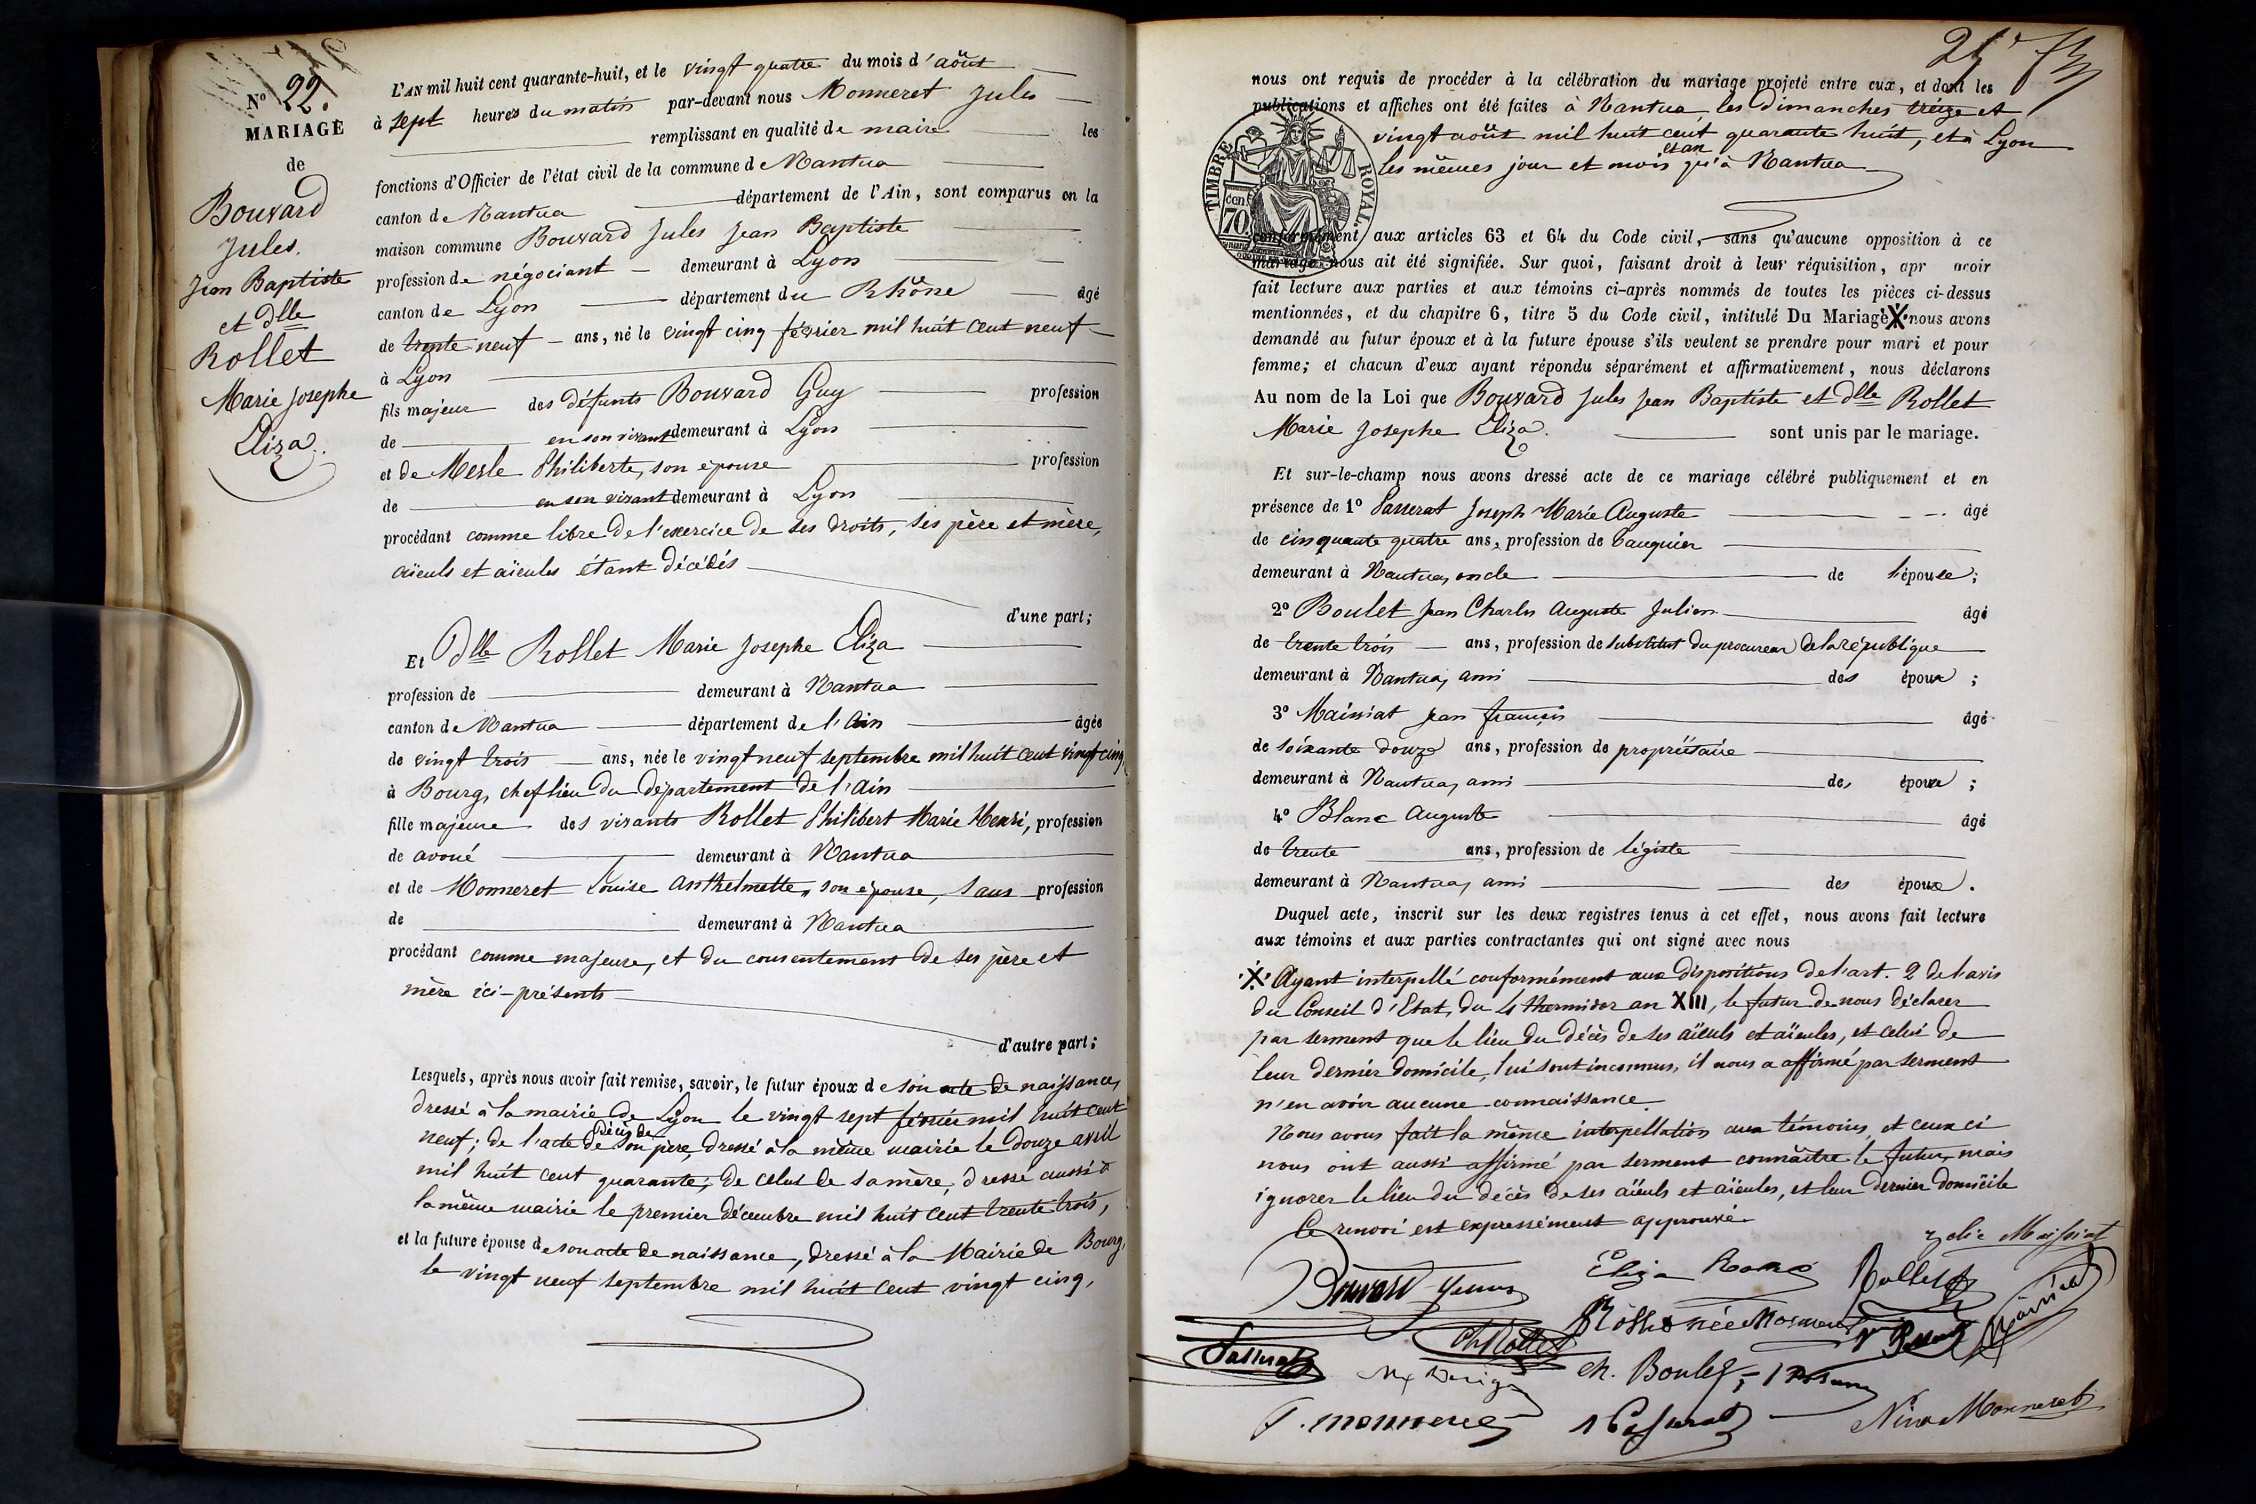 Nº 22.
MARIAGE
de
Bouvard
Jules.
Jean Baptiste
et dlle
Rollet
Marie Josephe
Eliza.
L'AN mil huit cent quarante-huit, et le vingt quatre du mois d'août
à sept heures du matin par-devant nous Monneret Jules
remplissant en qualité de maire les
fonctions d'Officier de l'état civil de la commune de Nantua
canton de Nantua département de l'Ain, sont comparus en la
maison commune Bouvard Jules Jean Baptiste
profession de négociant demeurant à Lyon
canton de Lyon département du Rhône âgé
de trente neuf ans, né le vingt cinq février mil huit cent neuf
à Lyon
fils majeur des défunts Bouvard Guy profession
de en son vivant demeurant à Lyon
et de Merle Philiberte, son épouse profession
de en son vivant demeurant à Lyon
procédant comme libre de l'exercice de ses droits, ses père et mère,
aïeuls et aïeules étant décédés
d'une part;
Et Dlle Rollet Marie Josephe Eliza
profession de demeurant à Nantua
canton de Nantua département de l'Ain âgée
de vingt trois ans, née le vingt neuf septembre mil huit cent vingt cinq
à Bourg, chef lieu du département de l'Ain
fille majeure des vivants Rollet Philibert Marie Henri, profession
de avoué demeurant à Nantua
et de Monneret Louise Anthelmette, son épouse, sans profession
de demeurant à Nantua
procédant comme majeure, et du consentement de ses père et
mère ici-présents
d'autre part;
Lesquels, après nous avoir fait remise, savoir, le futur époux de son acte de naissance,
dressé à la mairie de Lyon le vingt sept février mil huit cent
neuf; de l'acte de décès de son père, dressé à la même mairie le douze avril
mil huit cent quarante; de celui de sa mère, dressé aussi à
la même mairie le premier décembre mil huit cent trente trois,
et la future épouse de son acte de naissance, dressé à la Mairie de Bourg,
le vingt neuf septembre mil huit cent vingt cinq,
nous ont requis de procéder à la célébration du mariage projeté entre eux, et dont les
publications et affiches ont été faites à Nantua, les dimanches treize et
vingt août mil huit cent quarante huit, et à Lyon
les mêmes jour et mois et an qu'à Nantua
TIMBRE ROYAL
70 cen
conformément aux articles 63 et 64 du Code civil, sans qu'aucune opposition à ce
mariage nous ait été signifiée. Sur quoi, faisant droit à leur réquisition, apr avoir
fait lecture aux parties et aux témoins ci-après nommés de toutes les pièces ci-dessus
mentionnées, et du chapitre 6, titre 5 du Code civil, intitulé Du Mariage X nous avons
demandé au futur époux et à la future épouse s'ils veulent se prendre pour mari et pour
femme; et chacun d'eux ayant répondu séparément et affirmativement, nous déclarons
Au nom de la Loi que Bouvard Jules Jean Baptiste et dlle Rollet
Marie Josephe Eliza. sont unis par le mariage.
Et sur-le-champ nous avons dressé acte de ce mariage célébré publiquement et en
présence de 1º Passerat Joseph Marie Auguste âgé
de cinquante quatre ans, profession de banquier
demeurant à Nantua, oncle de l'épouse;
2º Boulet Jean Charles Auguste Julien âgé
de trente trois ans, profession de substitut du procureur de la république
demeurant à Nantua, ami des époux;
3º Maissiat Jean François âgé
de soixante douze ans, profession de propriétaire
demeurant à Nantua, ami des époux;
4º Blanc Auguste âgé
de trente ans, profession de légiste
demeurant à Nantua, ami des époux.
Duquel acte, inscrit sur les deux registres tenus à cet effet, nous avons fait lecture
aux témoins et aux parties contractantes qui ont signé avec nous
X Ayant interpellé conformément aux dispositions de l'art. 2 de l'avis
du Conseil d'Etat, du 4 thermidor an XIII, le futur de nous déclarer
par serment que le lieu du décès de ses aïeuls et aïeules, et celui de
leur dernier domicile, lui sont inconnus, il nous a affirmé par serment
n'en avoir aucune connaissance.
Nous avons fait la même interpellation aux témoins, et ceux ci
nous ont aussi affirmé par serment connaître le futur, mais
ignorer le lieu du décès de ses aïeuls et aïeules, et leur dernier domicile
Ce renvoi est expressément approuvé.
Zélie Maissiat
Bouvard Eliza Rollet
Ch Rollet Rollet née Monneret
Passerat Ch. Boulet
Monneret Passerat Nina Monneret